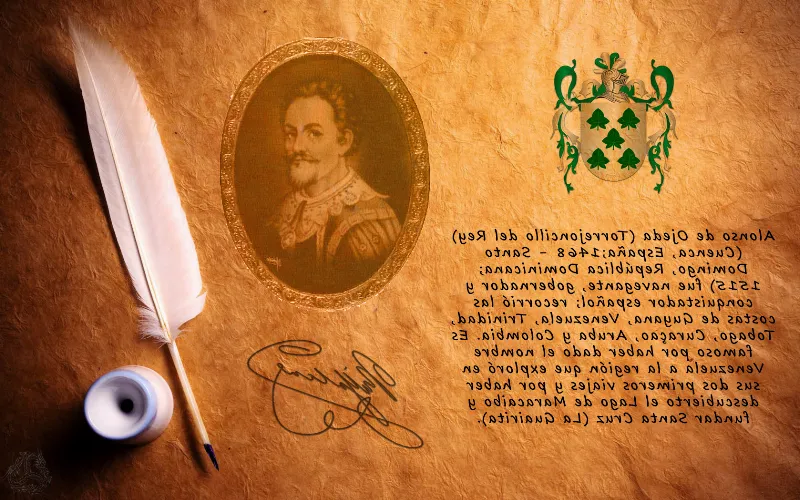 Alonso de Ojeda (Torrejoncillo del Rey)
(Cuenca, España;1468 – Santo
Domingo, República Dominicana;
1515) fue navegante, gobernador y
conquistador español; recorrió las
costas de Guyana, Venezuela, Trinidad,
Tobago, Curaçao, Aruba y Colombia. Es
famoso por haber dado el nombre
Venezuela a la región que exploró en
sus dos primeros viajes y por haber
descubierto el Lago de Maracaibo y
fundar Santa Cruz (La Guairita).